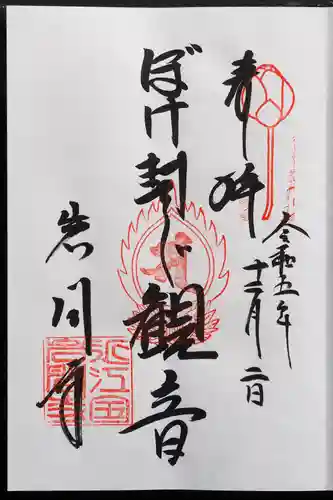 奉拝
令和五年
十二月二日
ぼけ封じ観音
岩间寺
近江国